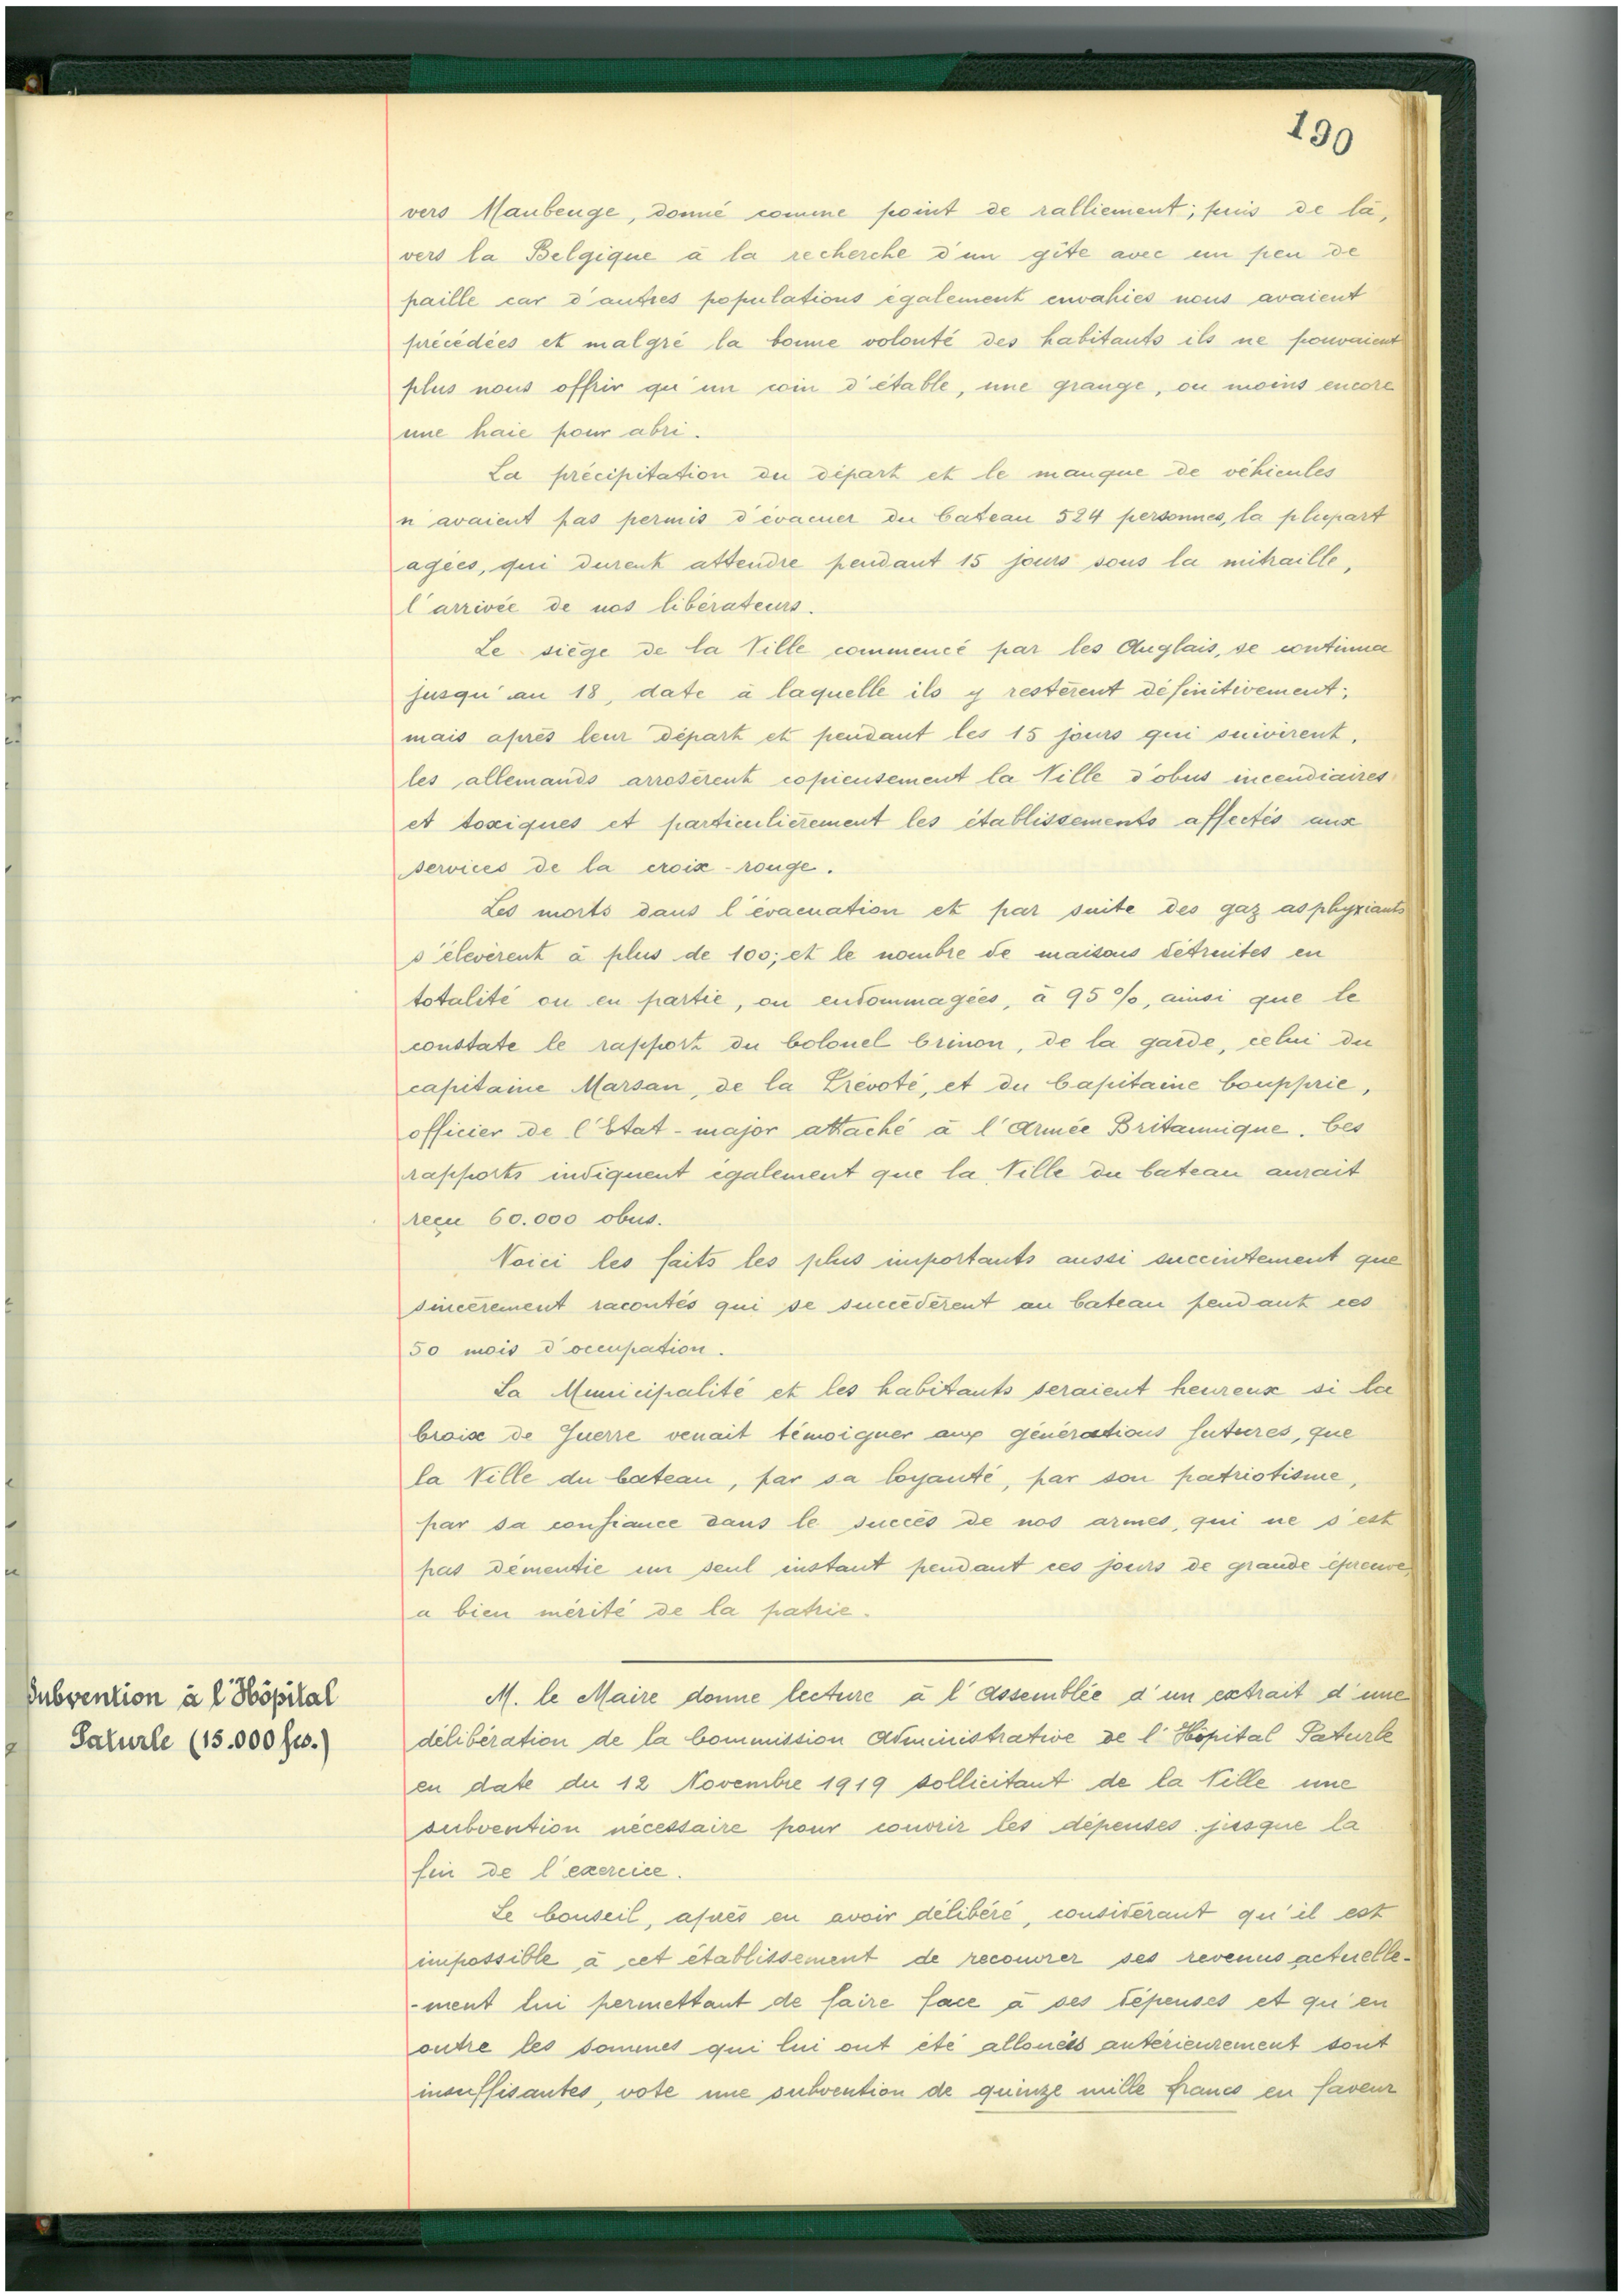 190
vers Maubeuge, donné comme point de ralliement; puis de là,
vers la Belgique à la recherche d'un gîte avec un peu de
paille car d'autres populations également envahies nous avaient
précédées et malgré la bonne volonté des habitants ils ne pouvaient
plus nous offrir qu'un coin d'étable, une grange, ou moins encore
une haie pour abri.
La précipitation du départ et le manque de véhicules
n'avaient pas permis d'évacuer du Cateau 524 personnes, la plupart
agées, qui durent attendre pendant 15 jours sous la mitraille,
l'arrivée de nos libérateurs.
Le siège de la Ville commencé par les Anglais, se continua
jusqu'au 18, date à laquelle ils y restèrent définitivement;
mais après leur départ et pendant les 15 jours qui suivirent,
les allemands arrosèrent copieusement la Ville d'obus incendiaires
et toxiques et particulièrement les établissements affectés aux
services de la croix-rouge.
Les morts dans l'évacuation et par suite des gaz asphyxiants
s'élevèrent à plus de 100; et le nombre de maisons détruites en
totalité ou en partie, ou endommagées, à 95 %, ainsi que le
constate le rapport du Colonel Crinon, de la garde, celui du
capitaine Marsan, de la Prévoté, et du Capitaine Coupprie,
officier de l'Etat-major attaché à l'Armée Britannique. Ces
rapports indiquent également que la Ville du Cateau aurait
reçu 60.000 obus.
Voici les faits les plus importants aussi succintement que
sincèrement racontés qui se succédèrent au Cateau pendant ces
50 mois d'occupation.
La Municipalité et les habitants seraient heureux si la
Croix de Guerre venait témoigner aux générations futures, que
la Ville du Cateau, par sa loyauté, par son patriotisme,
par sa confiance dans le succès de nos armes, qui ne s'est
pas démentie un seul instant pendant ces jours de grande épreuve,
a bien mérité de la patrie.
Subvention à l'Hôpital
Paturle (15.000 frs.)
M. le Maire donne lecture à l'Assemblée d'un extrait d'une
délibération de la Commission Administrative de l'Hôpital Paturle
en date du 12 Novembre 1919 sollicitant de la Ville une
subvention nécessaire pour couvrir les dépenses jusque la
fin de l'exercice.
Le Conseil, après en avoir délibéré, considérant qu'il est
impossible à cet établissement de recouvrer ses revenus actuelle-
-ment lui permettant de faire face à ses dépenses et qu'en
outre les sommes qui lui ont été allouées antérieurement sont
insuffisantes, vote une subvention de quinze mille francs en faveur